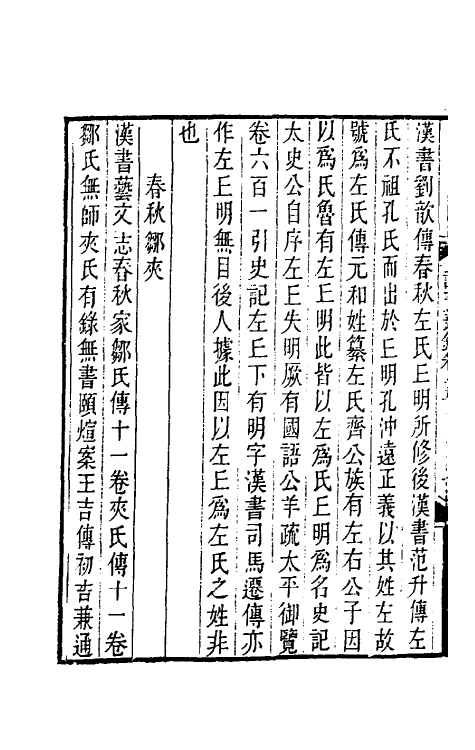 漢書劉歆傳春秋左氏丘明所修後漢書范升傳左
氏不祖孔氏而出於丘明孔沖遠正義以其姓左故
號爲左氏傳元和姓纂左氏齊公族有左右公子因
以爲氏魯有左丘明此皆以左爲氏丘明爲名史記
太史公自序左丘失明厥有國語公羊疏太平御覽
卷六百一引史記左丘下有明字漢書司馬遷傳亦
作左丘明無目後人據此因以左丘爲左氏之姓非
也
春秋鄒夾
漢書藝文志春秋家鄒氏傳十一卷夾氏傳十一卷
鄒氏無師夾氏有錄無書頤煊案王吉傳初吉兼通